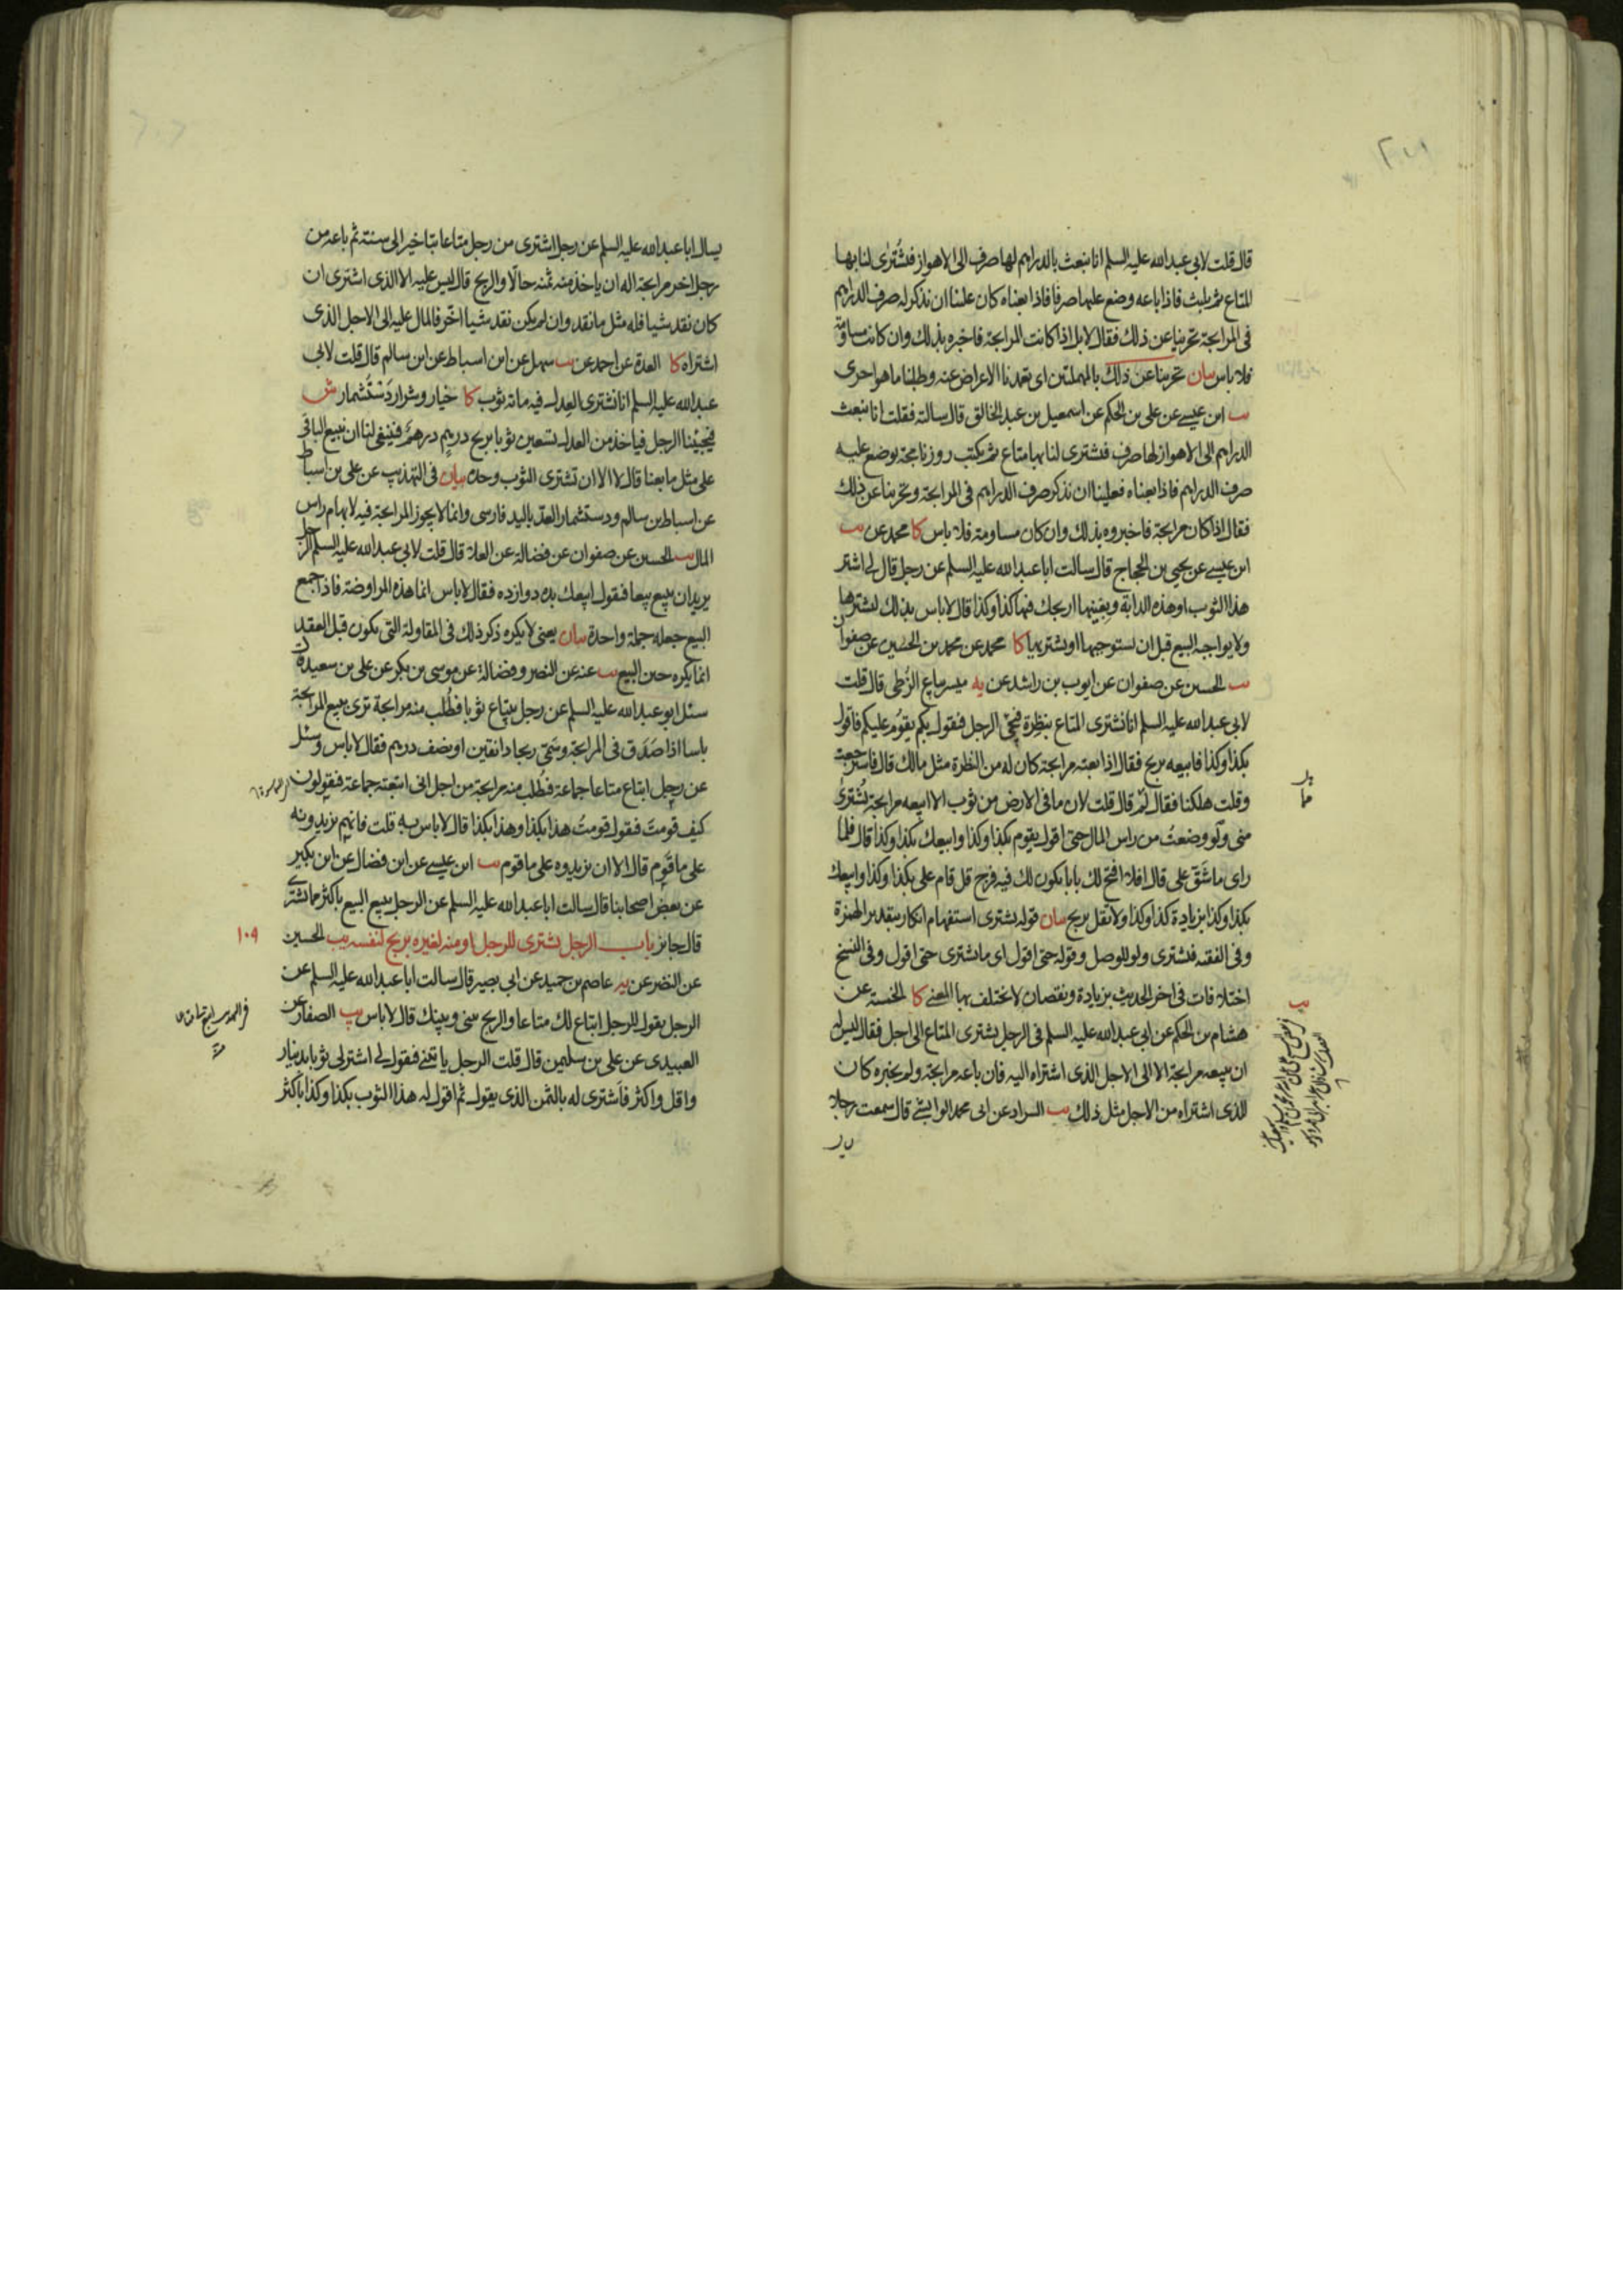 قال قلت لابى عبدالله عليه السلم انا نبعث بالدراهم لها صرف الى الاهواز فيشترى لنا بها
المتاع ثم يلبث فاذا باعه وضع عليها صرفا فاذا بعناه كان علينا ان نذكر له صرف الدراهم
فى المرابحة تحرينا عن ذلك فقال لا بل اذا كانت المرابحة فاخبره بذلك وان كانت مساومة
فلا باس بيان تحرينا عن ذلك بالمهملتين اى تعمدنا الاعراض عنه وطلبنا ما هو احرى
يب ابن عيسى عن على بن الحكم عن اسمعيل بن عبد الخالق قال سالته فقلت انا نبعث
الدراهم الى الاهواز لها صرف فيشترى لنا بها متاع ثم يكتب روزنامجه يوضع عليه
صرف الدراهم فاذا بعناه فعلينا ان نذكر صرف الدراهم فى المرابحة وتحرينا عن ذلك
فقال اذا كان مرابحة فاخبروه بذلك وان كان مساومة فلا باس كا محمد عن يب
ابن عيسى عن يحيى بن الحجاج قال سالت ابا عبدالله عليه السلم عن رجل قال لى اشتر
هذا الثوب او هذه الدابة وبعنيها اربحك فيها كذا وكذا قال لا باس بذلك ليشترها
ولا يواجبه البيع قبل ان يستوجبها او يشتريها كا محمد عن محمد بن الحسين عن صفوان
يب الحسين عن صفوان عن ايوب بن راشد عن يه ميسر بياع الزطى قال قلت
لابى عبدالله عليه السلم انا نشترى المتاع بنظرة فيجئ الرجل فيقول بكم يقوم عليكم فاقول
بكذا وكذا فابيعه بربح فقال اذا بعته مرابحة كان له من النظرة مثل مالك قال فاسترجعت
وقلت هلكنا فقال لم قال قلت لان ما فى الارض من ثوب الا ابيعه مرابحة يشترى
منى ولو وضعت من راس المال حتى اقول يقوم بكذا وكذا وابيعك بكذا وكذا قال فلما
راى ما شق على قال افلا افتح لك بابا يكون لك فيه فرج قل قام على بكذا وكذا وابيعك
بكذا وكذا بزيادة كذا وكذا ولا تقل بربح بيان قوله يشترى استفهام انكار بتقدير الهمزة
وفى الفقيه فيشترى ولو للوصل وقوله حتى اقول اى ما يشترى حتى اقول وفى النسخ
اختلافات فى اخر الحديث بزيادة ونقصان لا يختلف بها المعنى كا الخمسة عن
هشام بن الحكم عن ابى عبدالله عليه السلم فى الرجل يشترى المتاع الى اجل فقال ليس له
ان يبيعه مرابحة الا الى الاجل الذى اشتراه اليه فان باعه مرابحة ولم يخبره كان
للذى اشتراه من الاجل مثل ذلك يب السراد عن ابى محمد الوابشى قال سمعت رجلا
يسال ابا عبدالله عليه السلم عن رجل اشترى من رجل متاعا بتاخير الى سنة ثم باعه من
رجل اخر مرابحة اله ان ياخذ منه ثمنه حالا والربح قال ليس عليه الا الذى اشترى ان
كان نقد شيا فله مثل ما نقد وان لم يكن نقد شيا اخر فالمال عليه الى الاجل الذى
اشتراه كا العدة عن احمد عن يب سهل عن ابن اسباط عن ابن سالم قال قلت لابى
عبدالله عليه السلم انا نشترى العدل فيه مائة ثوب كا خيار وشرار دستشمار ش
فيجيئنا الرجل فياخذ من العدل تسعين ثوبا بربح درهم درهم فينبغى لنا ان نبيع الباقى
على مثل ما بعنا قال لا الا ان تشترى الثوب وحده بيان فى التهذيب عن على بن اسباط
عن اسباط بن سالم ودستشمار العد باليد فارسى وانما لا يجوز المرابحة فيه لابهام راس
المال يب الحسين عن صفوان عن فضالة عن العلا قال قلت لابى عبدالله عليه السلم الرجل
يريد ان يبيع بيعا فيقول ابيعك بده دوازده فقال لا باس انما هذه المراوضة فاذا جمع
البيع جعله جملة واحدة بيان يعنى لا يكره ذكر ذلك فى المقاولة التى يكون قبل العقد
انما يكره حين البيع يب عنه عن النضر وفضالة عن موسى بن بكر عن على بن سعيد قال
سئل ابو عبدالله عليه السلم عن رجل يبتاع ثوبا فطلب منه مرابحة ترى ببيع المرابحة
باسا اذا صدق فى المرابحة وسمى ربحا دانقين او نصف درهم فقال لا باس وسئل
عن رجل ابتاع متاعا جماعة فطلب منه مرابحة من اجل انى ابتعته جماعة فيقولون
كيف قومت فيقول قومت هذا بكذا وهذا بكذا قال لا باس به قلت فانهم يزيدونه
على ما قوم قال الا ان يزيدوه على ما قوم يب ابن عيسى عن ابن فضال عن ابن بكير
عن بعض اصحابنا قال سالت ابا عبدالله عليه السلم عن الرجل يبيع البيع باكثر مما يشترى
قال جائز باب الرجل يشترى للرجل او منه لغيره بربح لنفسه يب الحسين
١٠٩
عن النضر عن يه عاصم بن حميد عن ابى بصير قال سالت ابا عبدالله عليه السلم عن
الرجل يقول للرجل ابتاع لك متاعا والربح بينى وبينك قال لا باس يب الصفار عن
العبيدى عن على بن سليمن قال قلت الرجل ياتينى فيقول لى اشتر لى ثوبا بدينار
واقل واكثر فاشترى له بالثمن الذى يقول ثم اقول له هذا الثوب بكذا وكذا باكثر